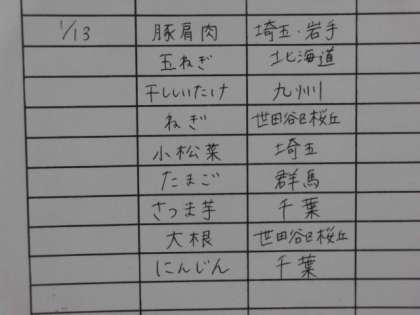 1/13 豚肩肉 埼玉・岩手
玉ねぎ 北海道
干ししいたけ 九州
ねぎ 世田谷区桜丘
小松菜 埼玉
たまご 群馬
さつま芋 千葉
大根 世田谷区桜丘
にんじん 千葉